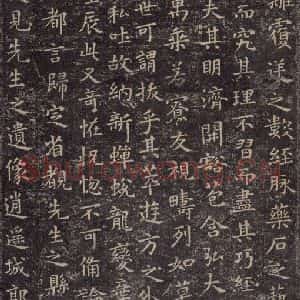 離覆逆之數經脉藥石之藝
而究其理不習而盡其巧經
夫其明濟開豁包含弘大
萬乘若寮友視疇列如草
世可謂拔乎其萃遊方之外
和吐故納新蟬蛻龍變棄
辰此又奇怪惚恍不可備論
都言歸定省覩先生之縣
見先生之遺像逍遥城郭